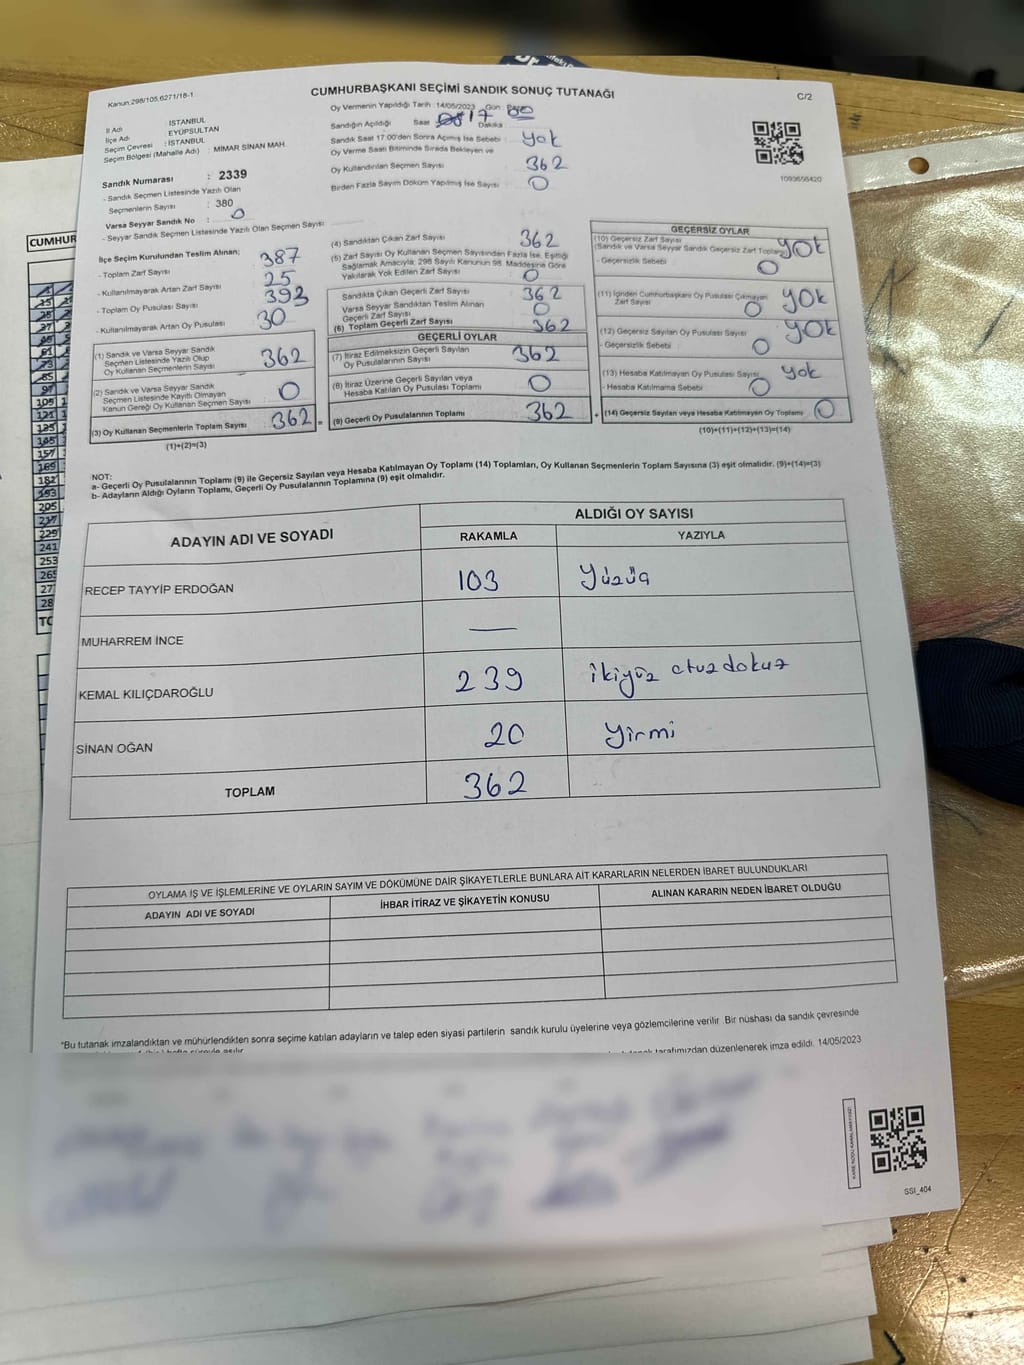 Kanun,298/105,6271/18-1
CUMHURBAŞKANI SEÇİMİ SANDIK SONUÇ TUTANAĞI
C/2
İl Adı : İSTANBUL
İlçe Adı : EYÜPSULTAN
Seçim Çevresi : İSTANBUL
Seçim Bölgesi (Mahalle Adı) : MİMAR SİNAN MAH.
Sandık Numarası : 2339
- Sandık Seçmen Listesinde Yazılı Olan
Seçmenlerin Sayısı : 380
Varsa Seyyar Sandık No : 0
- Seyyar Sandık Seçmen Listesinde Yazılı Olan Seçmen Sayısı
Oy Vermenin Yapıldığı Tarih : 14/05/2023 Gün : Pazar
Sandığın Açıldığı Saat 17 Dakika
Sandık Saat 17:00'den Sonra Açılmış İse Sebebi yok
Oy Verme Saati Bitiminde Sırada Bekleyen ve
Oy Kullandırılan Seçmen Sayısı 362
Birden Fazla Sayım Döküm Yapılmış İse Sayısı 0
1093656420
İlçe Seçim Kurulundan Teslim Alınan;
- Toplam Zarf Sayısı 387
- Kullanılmayarak Artan Zarf Sayısı 25
- Toplam Oy Pusulası Sayısı 393
- Kullanılmayarak Artan Oy Pusulası 30
(1) Sandık ve Varsa Seyyar Sandık
Seçmen Listesinde Yazılı Olup
Oy Kullanan Seçmenlerin Sayısı 362
(2) Sandık ve Varsa Seyyar Sandık
Seçmen Listesinde Kayıtlı Olmayan
Kanun Gereği Oy Kullanan Seçmen Sayısı 0
(3) Oy Kullanan Seçmenlerin Toplam Sayısı 362 =
(1)+(2)=(3)
(4) Sandıktan Çıkan Zarf Sayısı 362
(5) Zarf Sayısı Oy Kullanan Seçmen Sayısından Fazla İse, Eşitliği
Sağlamak Amacıyla, 298 Sayılı Kanunun 98. Maddesine Göre
Yakılarak Yok Edilen Zarf Sayısı 0
Sandıkta Çıkan Geçerli Zarf Sayısı 362
Varsa Seyyar Sandıktan Teslim Alınan
Geçerli Zarf Sayısı 0
(6) Toplam Geçerli Zarf Sayısı 362
GEÇERLİ OYLAR
(7) İtiraz Edilmeksizin Geçerli Sayılan
Oy Pusulalarının Sayısı 362
(8) İtiraz Üzerine Geçerli Sayılan veya
Hesaba Katılan Oy Pusulası Toplamı 0
(9) Geçerli Oy Pusulalarının Toplamı 362 +
GEÇERSİZ OYLAR
(10) Geçersiz Zarf Sayısı
(Sandık ve Varsa Seyyar Sandık Geçersiz Zarf Toplamı) yok
- Geçersizlik Sebebi 0
(11) İçinden Cumhurbaşkanı Oy Pusulası Çıkmayan
Zarf Sayısı 0 yok
(12) Geçersiz Sayılan Oy Pusulası Sayısı yok
- Geçersizlik Sebebi 0
(13) Hesaba Katılmayan Oy Pusulası Sayısı yok
- Hesaba Katılmama Sebebi 0
(14) Geçersiz Sayılan veya Hesaba Katılmayan Oy Toplamı 0
(10)+(11)+(12)+(13)=(14)
NOT:
a- Geçerli Oy Pusulalarının Toplamı (9) ile Geçersiz Sayılan veya Hesaba Katılmayan Oy Toplamı (14) Toplamları, Oy Kullanan Seçmenlerin Toplam Sayısına (3) eşit olmalıdır. (9)+(14)=(3)
b- Adayların Aldığı Oyların Toplamı, Geçerli Oy Pusulalarının Toplamına (9) eşit olmalıdır.
ADAYIN ADI VE SOYADI
ALDIĞI OY SAYISI
RAKAMLA YAZIYLA
RECEP TAYYİP ERDOĞAN 103 Yüzüç
MUHARREM İNCE —
KEMAL KILIÇDAROĞLU 239 ikiyüz otuzdokuz
SİNAN OĞAN 20 Yirmi
TOPLAM 362
OYLAMA İŞ VE İŞLEMLERİNE VE OYLARIN SAYIM VE DÖKÜMÜNE DAİR ŞİKAYETLERLE BUNLARA AİT KARARLARIN NELERDEN İBARET BULUNDUKLARI
ADAYIN ADI VE SOYADI İHBAR İTİRAZ VE ŞİKAYETİN KONUSU ALINAN KARARIN NEDEN İBARET OLDUĞU
*Bu tutanak imzalandıktan ve mühürlendikten sonra seçime katılan adayların ve talep eden siyasi partilerin sandık kurulu üyelerine veya gözlemcilerine verilir. Bir nüshası da sandık çevresinde
tarafımızdan düzenlenerek imza edildi. 14/05/2023
SSI_404
CUMHUR
241
253